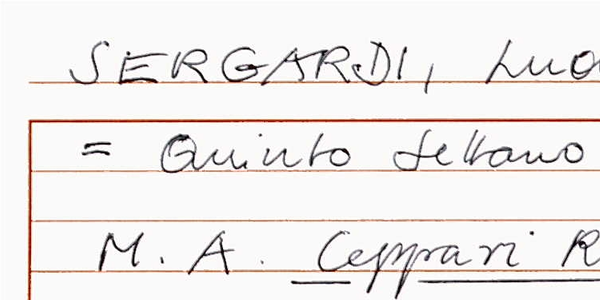 SERGARDI, Lud
= Quinto Settano
M. A. Ceppari R